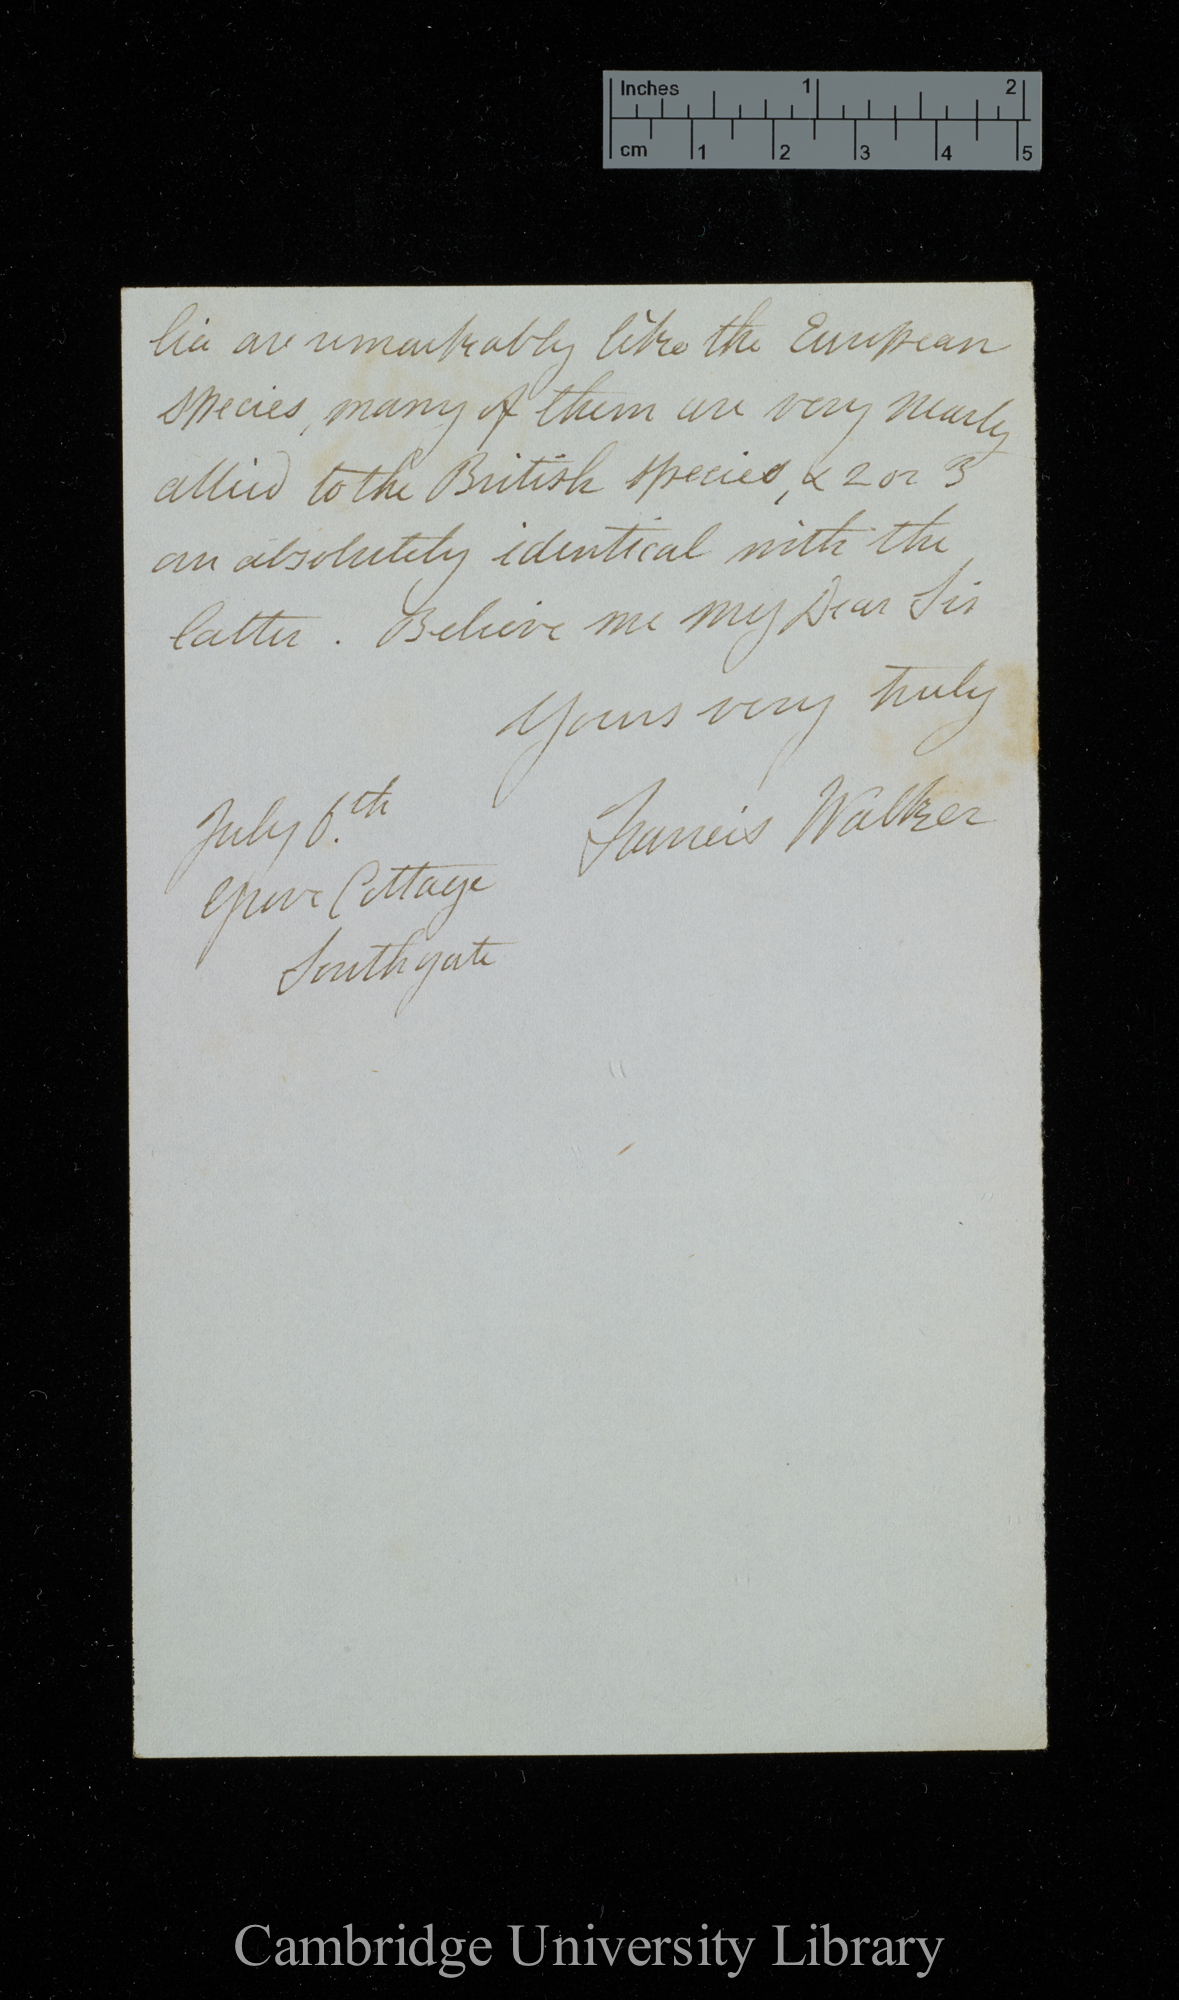 Inches 1 2
cm 1 2 3 4 5
lia are remarkably like the European
species, many of them are very nearly
allied to the British species, & 2 or 3
are absolutely identical with the
latter. Believe me my Dear Sir
Yours very truly
Francis Walker
July 6.th
Grove Cottage
Southgate
Cambridge University Library